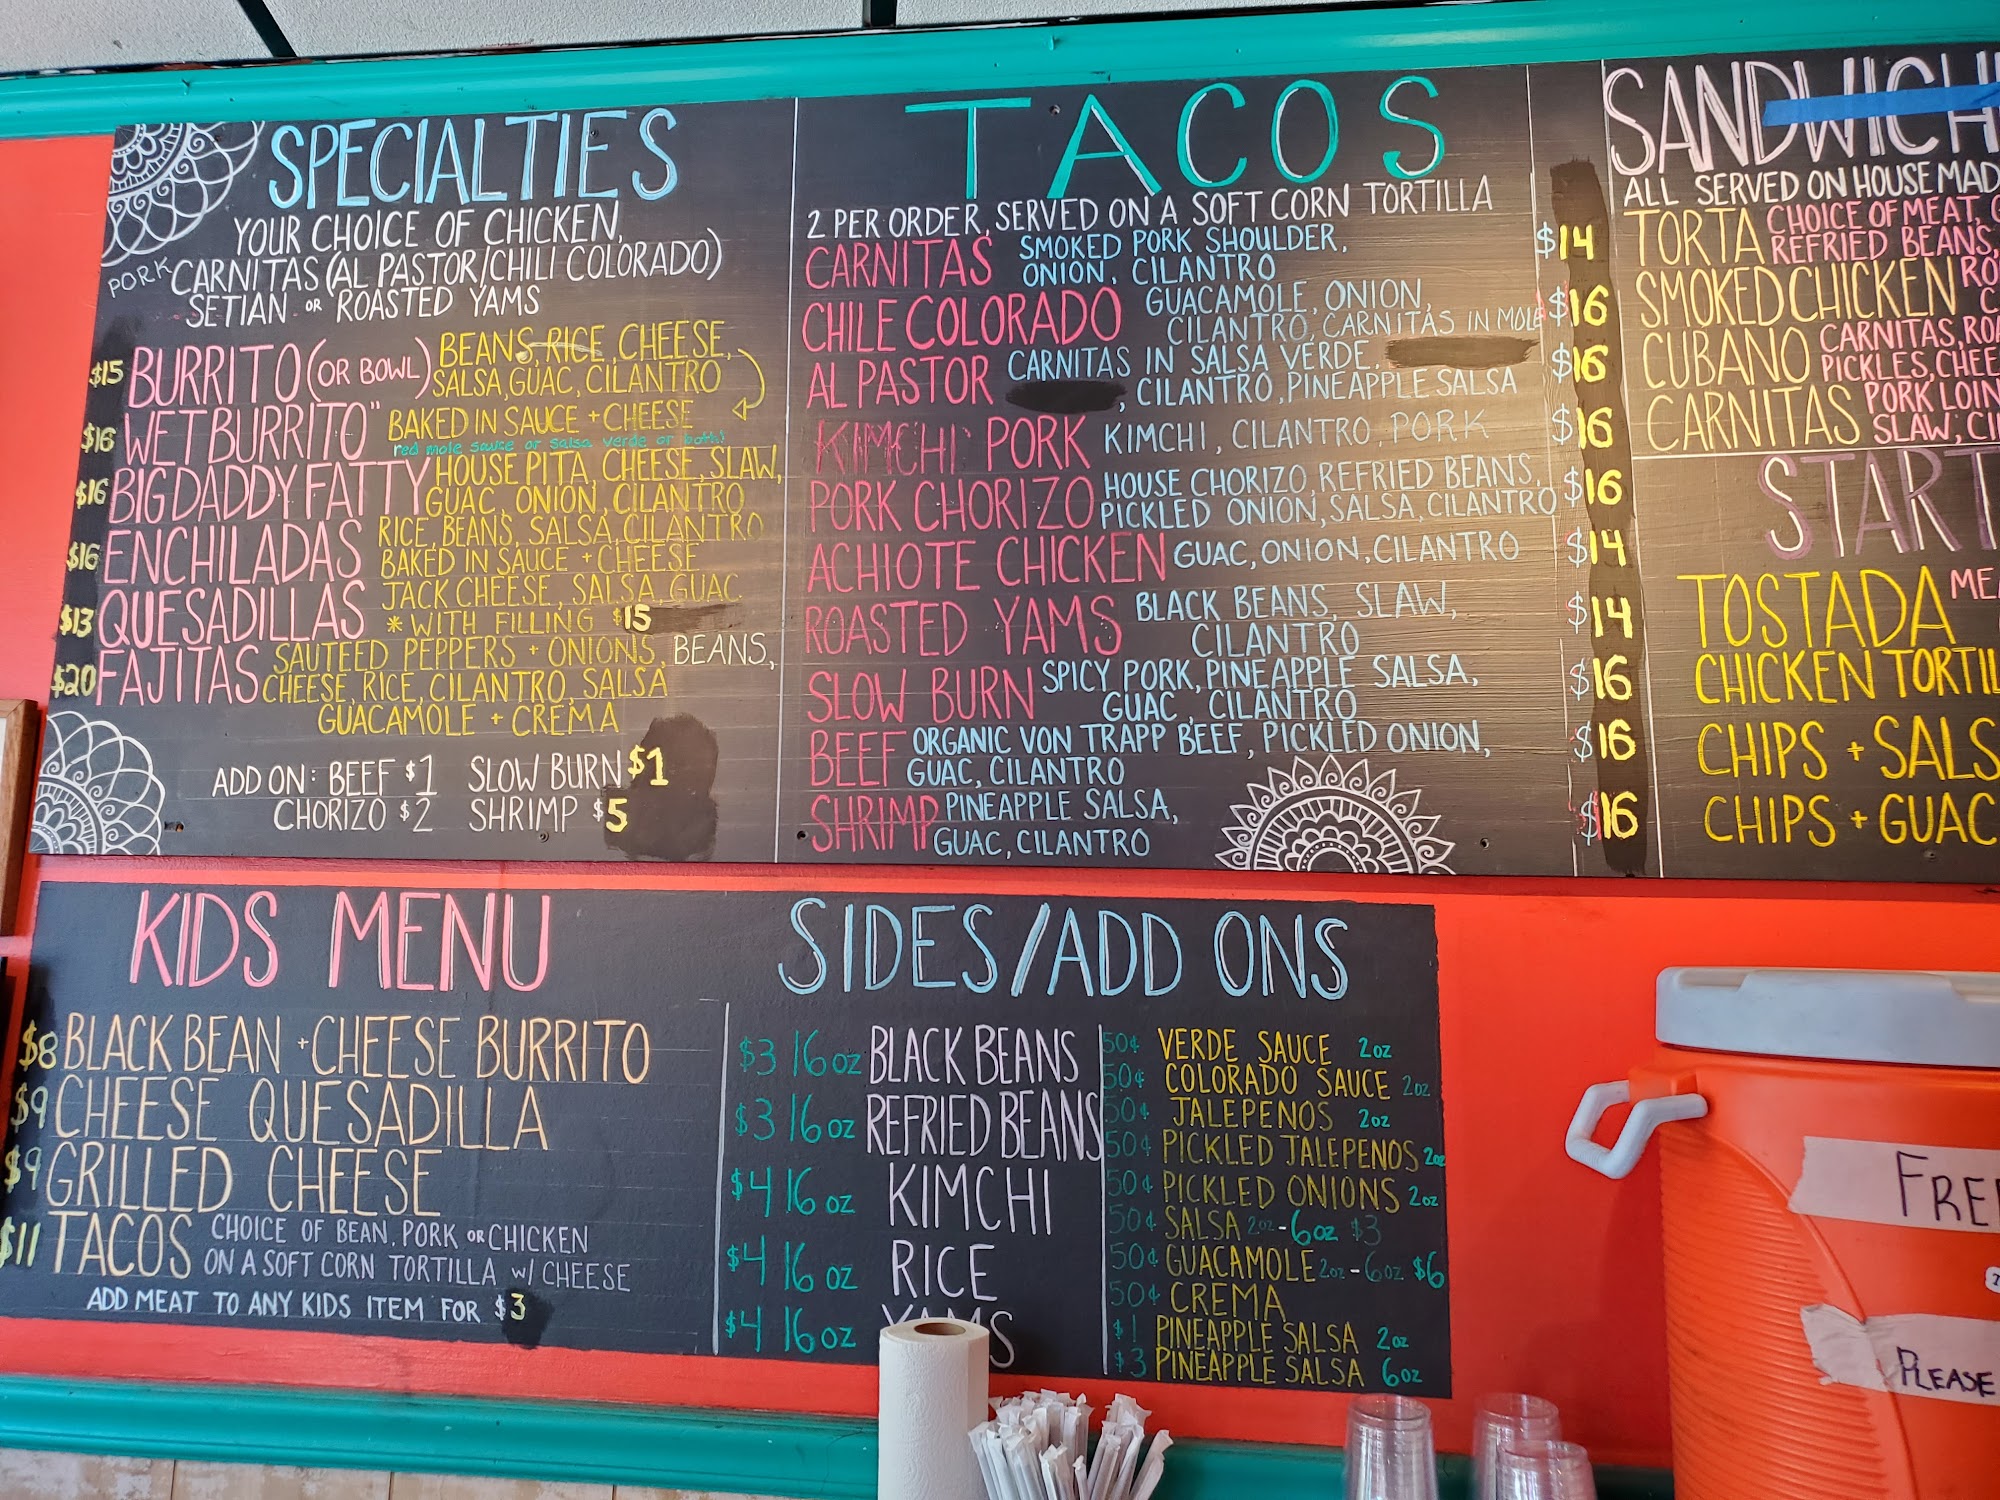 SPECIALTIES
YOUR CHOICE OF CHICKEN,
PORK CARNITAS (AL PASTOR/CHILI COLORADO)
SETIAN OR ROASTED YAMS
$15 BURRITO (OR BOWL) BEANS, RICE, CHEESE,
SALSA, GUAC, CILANTRO
$16 WET BURRITO" BAKED IN SAUCE + CHEESE
red mole sauce or salsa verde or both!
$16 BIG DADDY FATTY HOUSE PITA, CHEESE, SLAW,
GUAC, ONION, CILANTRO
$16 ENCHILADAS RICE, BEANS, SALSA, CILANTRO
BAKED IN SAUCE + CHEESE
$13 QUESADILLAS JACK CHEESE, SALSA, GUAC
*WITH FILLING $15
$20 FAJITAS SAUTEED PEPPERS + ONIONS, BEANS,
CHEESE, RICE, CILANTRO, SALSA
GUACAMOLE + CREMA
ADD ON: BEEF $1 SLOW BURN $1
CHORIZO $2 SHRIMP $5
TACOS
2 PER ORDER, SERVED ON A SOFT CORN TORTILLA
CARNITAS SMOKED PORK SHOULDER, $14
ONION, CILANTRO
CHILE COLORADO GUACAMOLE, ONION, $16
CILANTRO, CARNITAS IN MOLE
AL PASTOR CARNITAS IN SALSA VERDE, $16
, CILANTRO, PINEAPPLE SALSA
KIMCHI PORK KIMCHI, CILANTRO, PORK $16
PORK CHORIZO HOUSE CHORIZO, REFRIED BEANS, $16
PICKLED ONION, SALSA, CILANTRO
ACHIOTE CHICKEN GUAC, ONION, CILANTRO $14
ROASTED YAMS BLACK BEANS, SLAW, $14
CILANTRO
SLOW BURN SPICY PORK, PINEAPPLE SALSA, $16
GUAC, CILANTRO
BEEF ORGANIC VON TRAPP BEEF, PICKLED ONION, $16
GUAC, CILANTRO
SHRIMP PINEAPPLE SALSA, $16
GUAC, CILANTRO
SANDWICH
ALL SERVED ON HOUSE MAD
TORTA CHOICE OF MEAT, G
REFRIED BEANS,
SMOKED CHICKEN RO
C
CUBANO CARNITAS, ROA
PICKLES, CHEE
CARNITAS PORK LOIN
SLAW, CI
START
TOSTADA MEA
CHICKEN TORTIL
CHIPS + SALS
CHIPS + GUAC
KIDS MENU
$8 BLACK BEAN + CHEESE BURRITO
$9 CHEESE QUESADILLA
$9 GRILLED CHEESE
$11 TACOS CHOICE OF BEAN, PORK OR CHICKEN
ON A SOFT CORN TORTILLA W/ CHEESE
ADD MEAT TO ANY KIDS ITEM FOR $3
SIDES/ADD ONS
$3 16oz BLACK BEANS
$3 16oz REFRIED BEANS
$4 16oz KIMCHI
$4 16oz RICE
$4 16oz YAMS
50¢ VERDE SAUCE 2oz
50¢ COLORADO SAUCE 2oz
50¢ JALEPENOS 2oz
50¢ PICKLED JALEPENOS 2oz
50¢ PICKLED ONIONS 2oz
50¢ SALSA 2oz - 6oz $3
50¢ GUACAMOLE 2oz - 6oz $6
50¢ CREMA
$1 PINEAPPLE SALSA 2oz
$3 PINEAPPLE SALSA 6oz
FREE
PLEASE